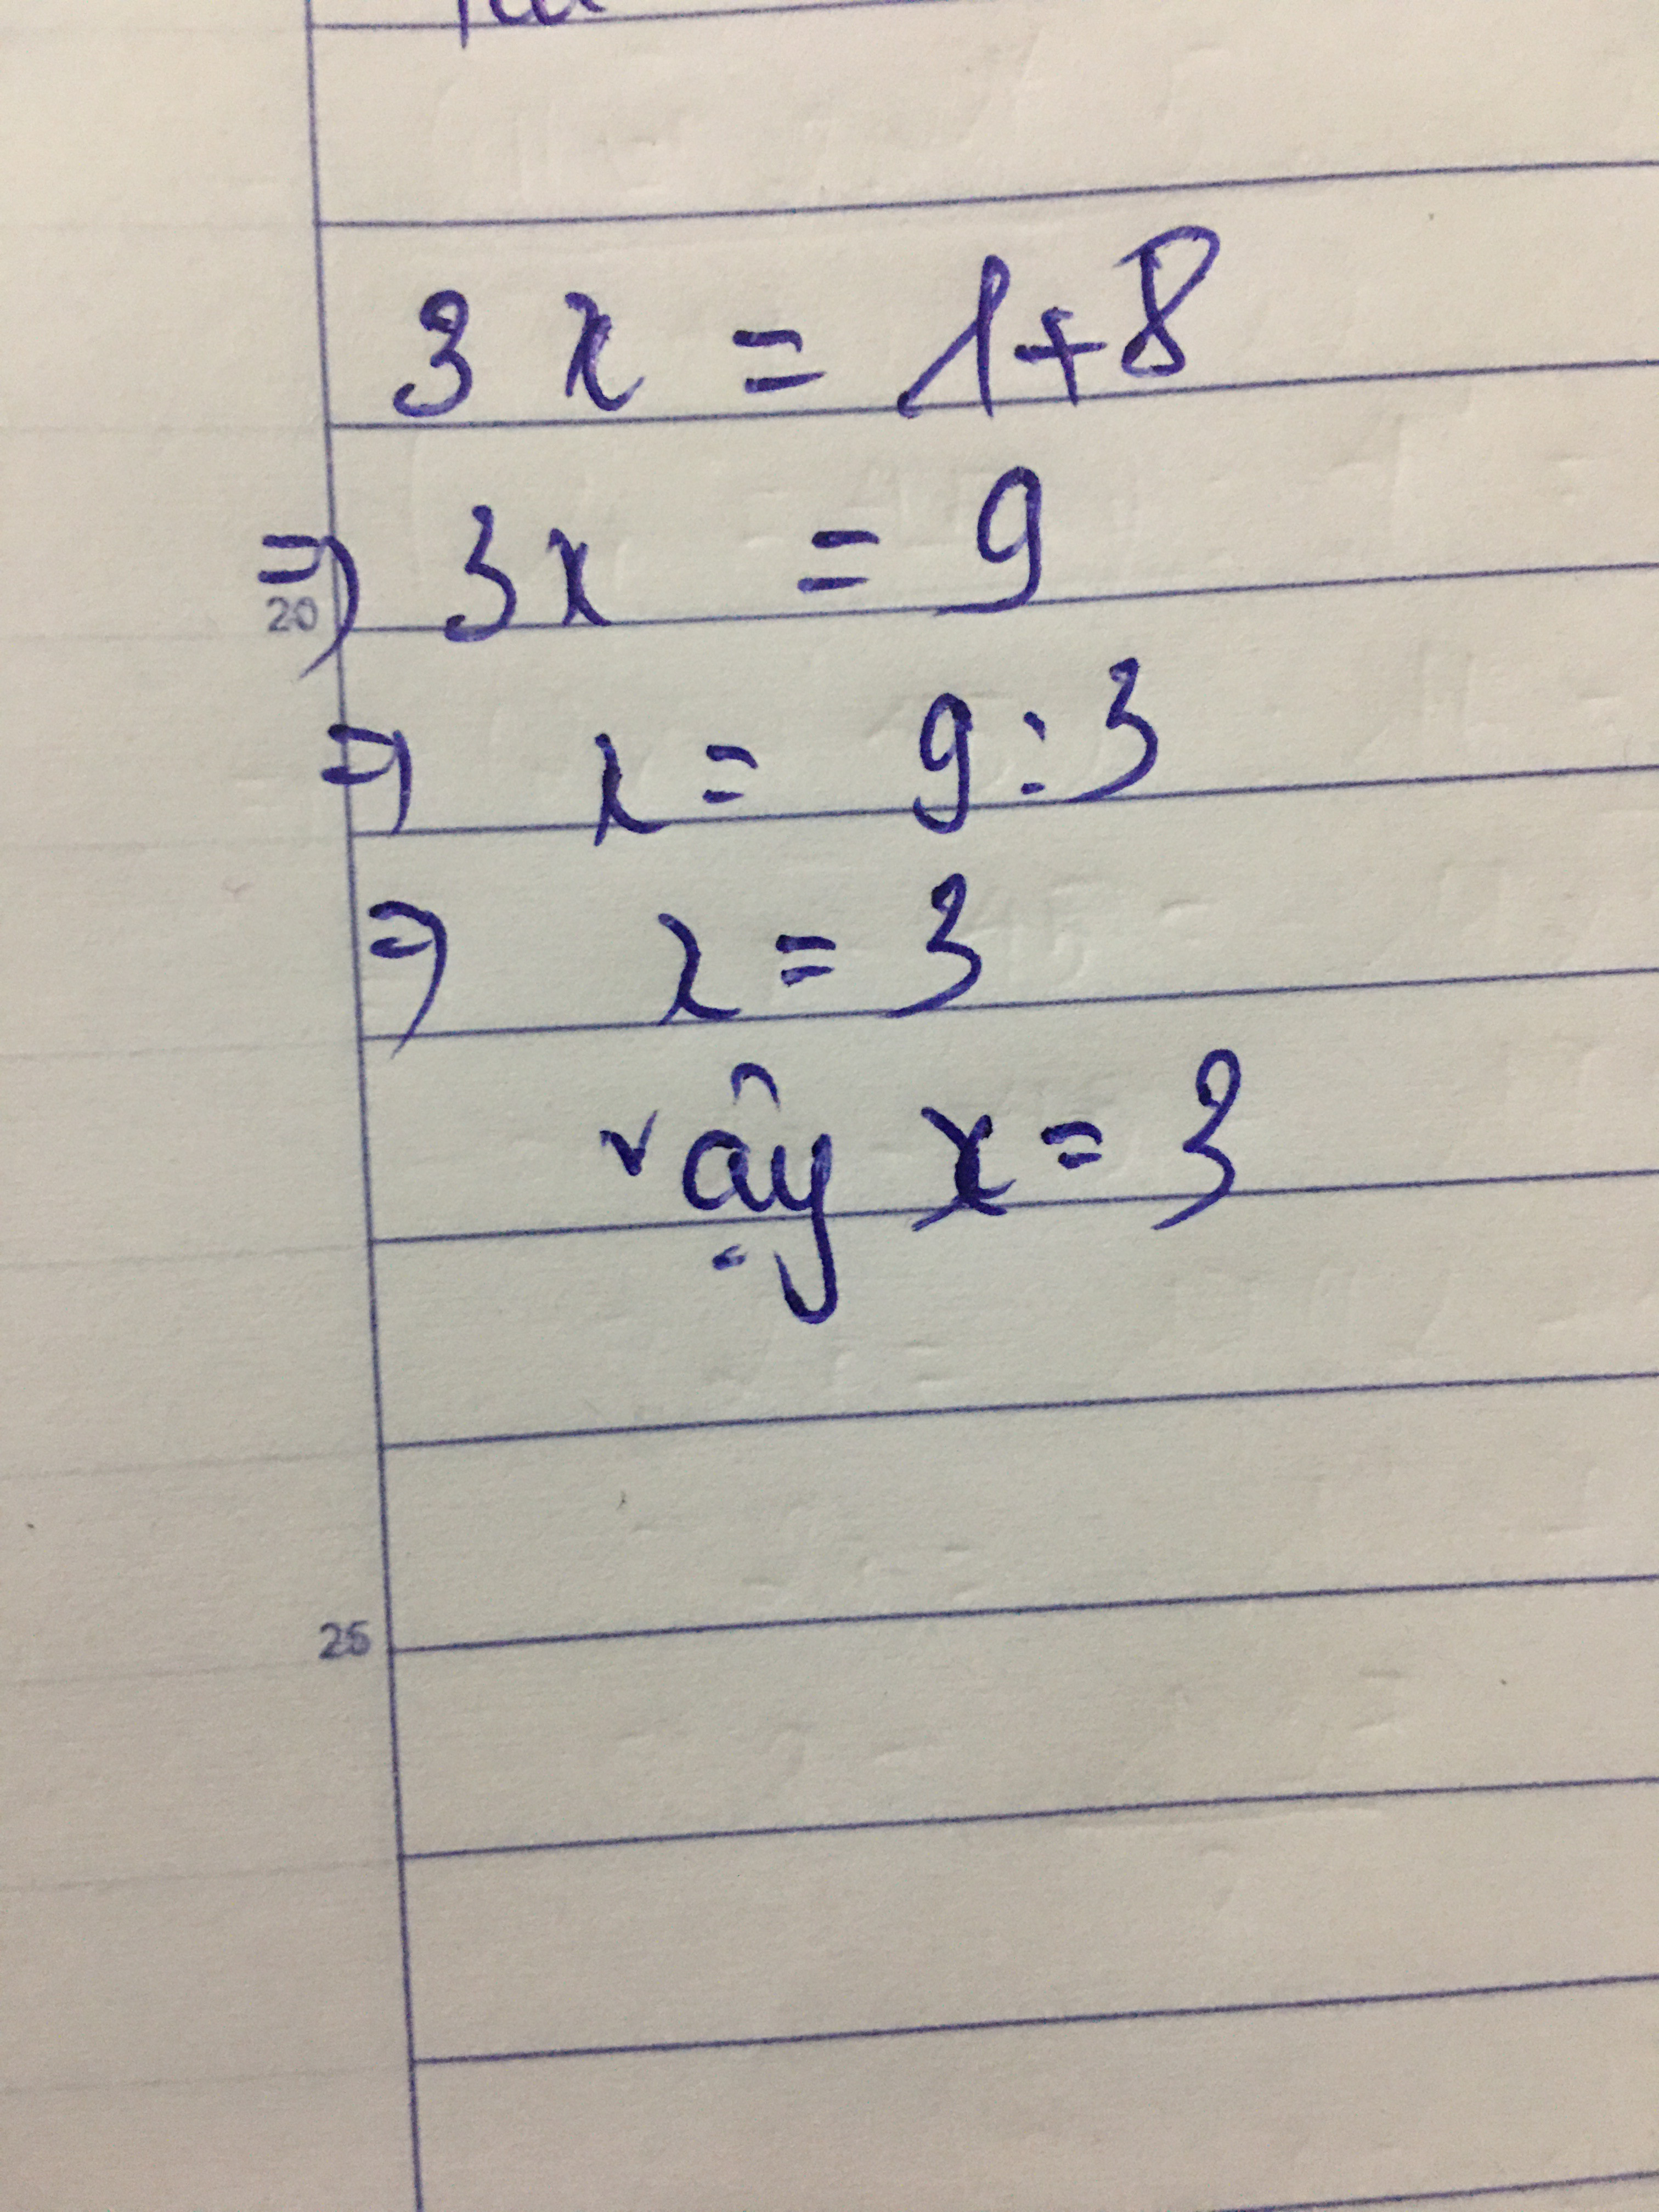 3x = 1+8
=> 3x = 9
20
=> x = 9:3
=> x = 3
vậy x = 3
25